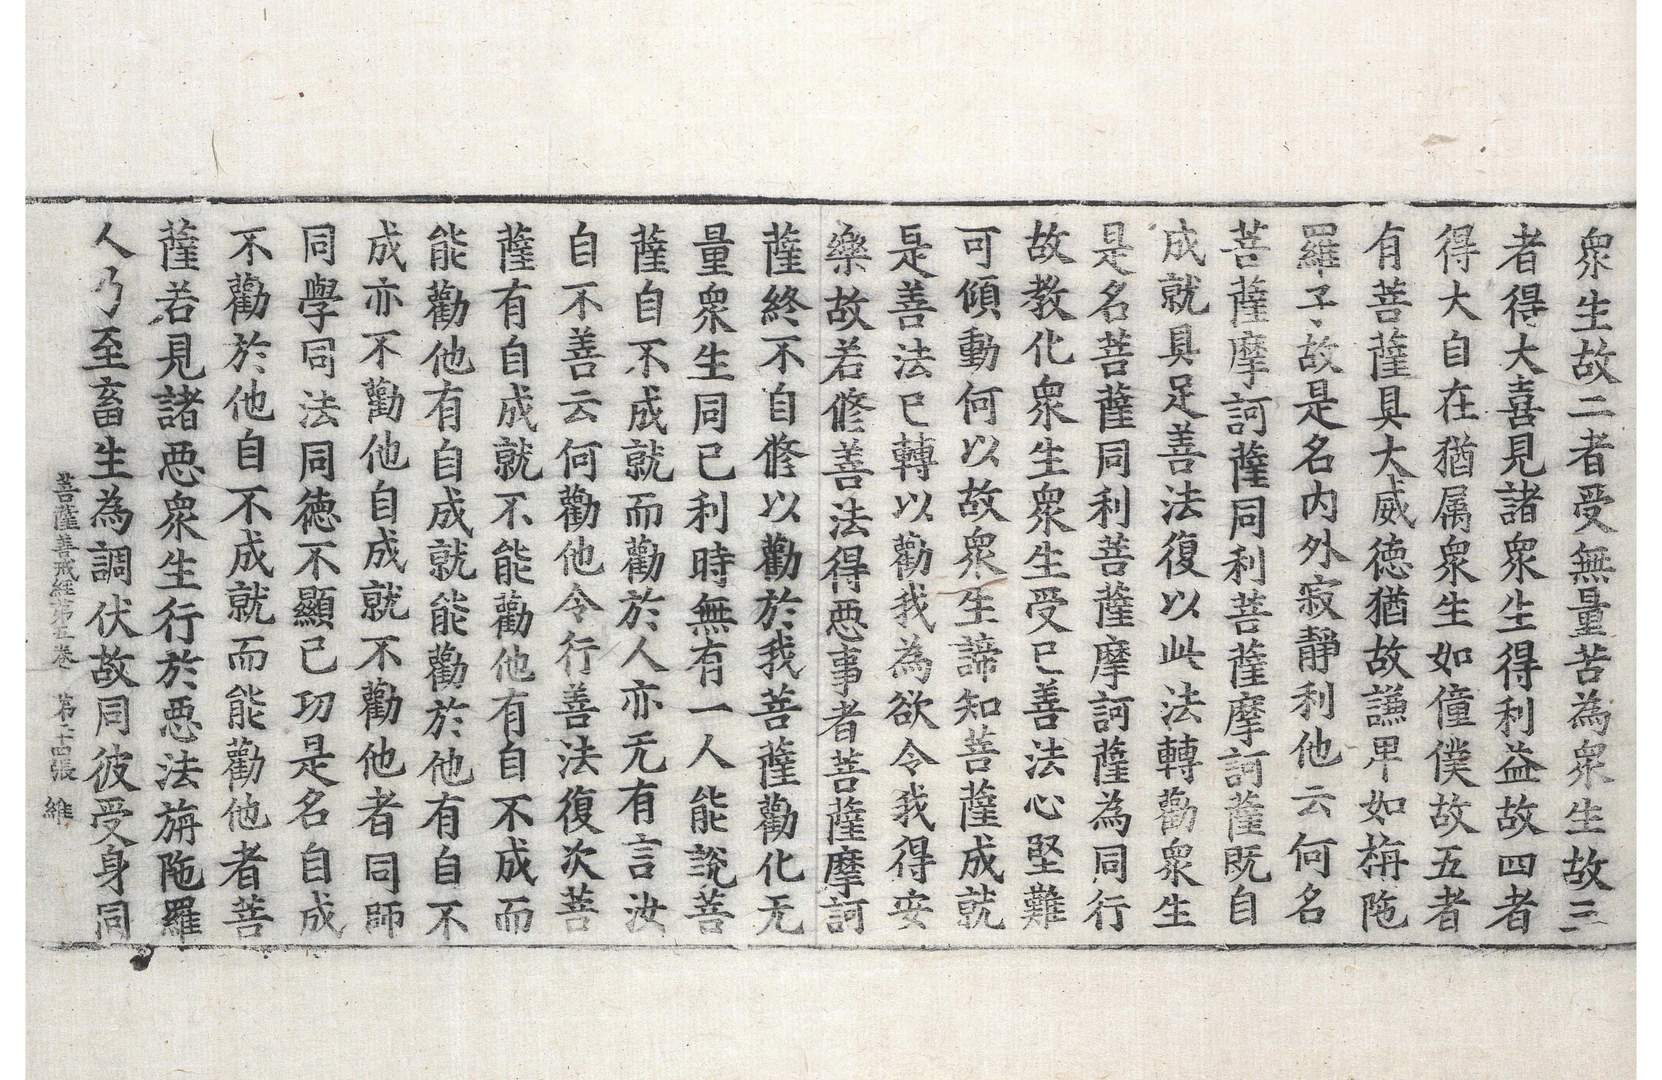 衆生故二者受無量苦為衆生故三
者得大喜見諸衆生得利益故四者
得大自在猶属衆生如僮僕故五者
有菩薩具大威德猶故謙卑如栴陁
羅子故是名内外寂靜利他云何名
菩薩摩訶薩同利菩薩摩訶薩既自
成就具足善法復以此法轉勸衆生
是名菩薩同利菩薩摩訶薩為同行
故教化衆生衆生受已善法心堅難
可傾動何以故衆生諦知菩薩成就
是善法已轉以勸我為欲令我得安
樂故若修善法得惡事者菩薩摩訶
薩終不自修以勸於我菩薩勸化无
量衆生同己利時無有一人能說菩
薩自不成就而勸於人亦无有言汝
自不善云何勸他令行善法復次菩
薩有自成就不能勸他有自不成而
能勸他有自成就能勸於他有自不
成亦不勸他自成就不勸他者同師
同學同法同德不顯己功是名自成
不勸於他自不成就而能勸他者菩
薩若見諸惡衆生行於惡法旃陁羅
人乃至畜生為調伏故同彼受身同
菩薩善戒經第五卷 第十四張 維